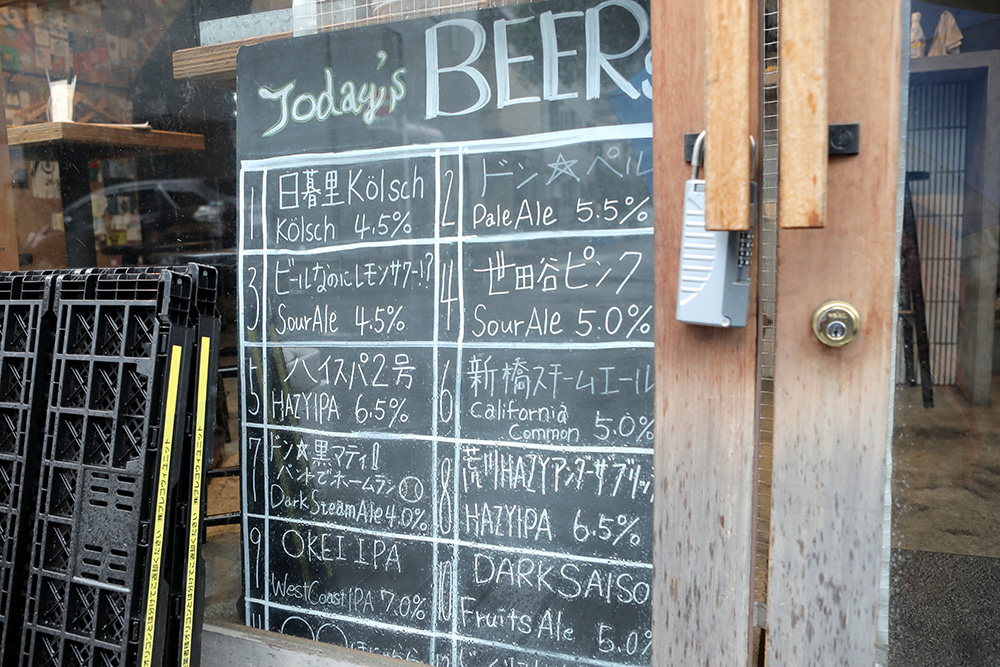 Today's BEERS
1 日暮里 Kölsch
Kölsch 4.5%
2 ドン☆ペル
Pale Ale 5.5%
3 ビールなのにレモンサワー!?
Sour Ale 4.5%
4 世田谷ピンク
Sour Ale 5.0%
5 ハイスパ2号
HAZY IPA 6.5%
6 新橋スチームエール
California
Common 5.0%
7 ドン☆黒マティ!!
バントでホームラン
Dark Steam Ale 4.0%
8 荒川HAZYアンダーザブリッ
HAZY IPA 6.5%
9 OKEI IPA
West Coast IPA 7.0%
10 DARK SAISO
Fruits Ale 5.0%